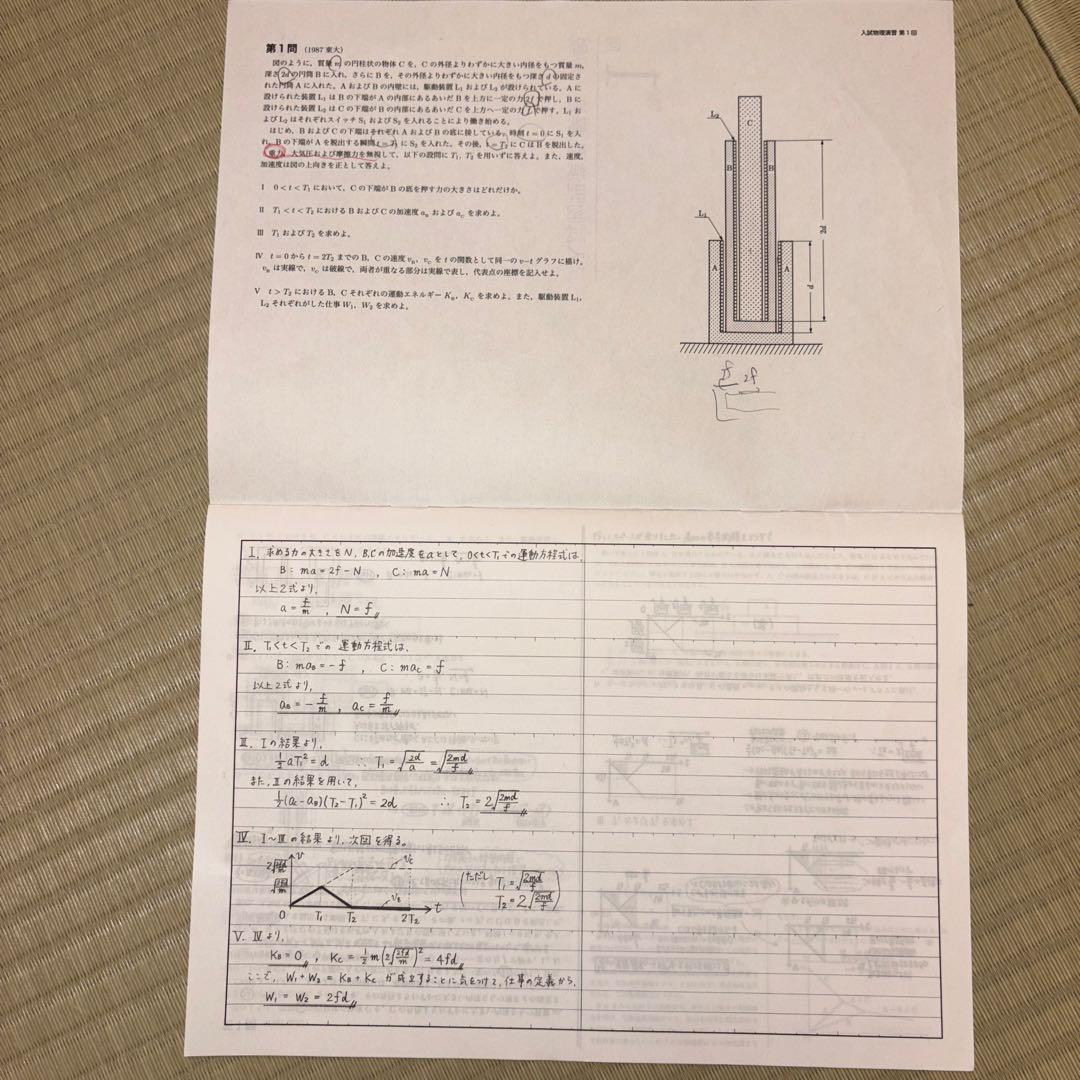 入試物理演習 第1回
第1問 (1987 東大)
図のように，質量 m の円柱状の物体 C を，C の外径よりわずかに大きい内径をもつ質量 m，
深さ 2d の円筒 B に入れ，さらに B を，その外径よりわずかに大きい内径をもつ深さ d の固定さ
れた円筒 A に入れた。A および B の内壁には，駆動装置 L₁ および L₂ が設けられている。A に
設けられた装置 L₁ は B の下端が A の内部にあるあいだ B を上方に一定の力 2f で押し，B に
設けられた装置 L₂ は C の下端が B の内部にあるあいだ C を上方へ一定の力 f で押す。L₁ お
よび L₂ はそれぞれスイッチ S₁ および S₂ を入れることにより働き始める。
はじめ，B および C の下端はそれぞれ A および B の底に接している。時刻 t = 0 に S₁ を入
れ，B の下端が A を脱出する瞬間 t = T₁ に S₂ を入れた。その後，t = T₂ に C は B を脱出した。
重力，大気圧および摩擦力を無視して，以下の設問に T₁，T₂ を用いずに答えよ。また，速度，
加速度は図の上向きを正として答えよ。
I 0 < t < T₁ において，C の下端が B の底を押す力の大きさはどれだけか。
II T₁ < t < T₂ における B および C の加速度 a_B および a_C を求めよ。
III T₁ および T₂ を求めよ。
IV t = 0 から t = 2T₂ までの B，C の速度 v_B，v_C を t の関数として同一の v−t グラフに描け。
v_B は実線で，v_C は破線で，両者が重なる部分は実線で表し，代表点の座標を記入せよ。
V t > T₂ における B，C それぞれの運動エネルギー K_B，K_C を求めよ。また，駆動装置 L₁，
L₂ それぞれがした仕事 W₁，W₂ を求めよ。
C
L₂
B
B
L₁
A
A
2d
d
f
2f
I. 求める力の大きさをN, B,Cの加速度をaとして, 0<t<T₁での運動方程式は,
B: ma = 2f − N , C: ma = N
以上2式より,
a = f/m , N = f
II. T₁<t<T₂での運動方程式は,
B: ma_B = −f , C: ma_C = f
以上2式より,
a_B = −f/m , a_C = f/m
III. Iの結果より,
½aT₁² = d ∴ T₁ = √(2d/a) = √(2md/f)
また, IIの結果を用いて,
½(a_C − a_B)(T₂−T₁)² = 2d ∴ T₂ = 2√(2md/f)
IV. I〜IIIの結果より, 次図を得る。
v
v_C
v_B
0
T₁
T₂
2T₂
t
(ただし T₁ = √(2md/f)
T₂ = 2√(2md/f))
V. IVより,
K_B = 0 , K_C = ½m(2√(2fd/m))² = 4fd
ここで, W₁+W₂ = K_B+K_C が成立することに気をつけて, 仕事の定義から,
W₁ = W₂ = 2fd